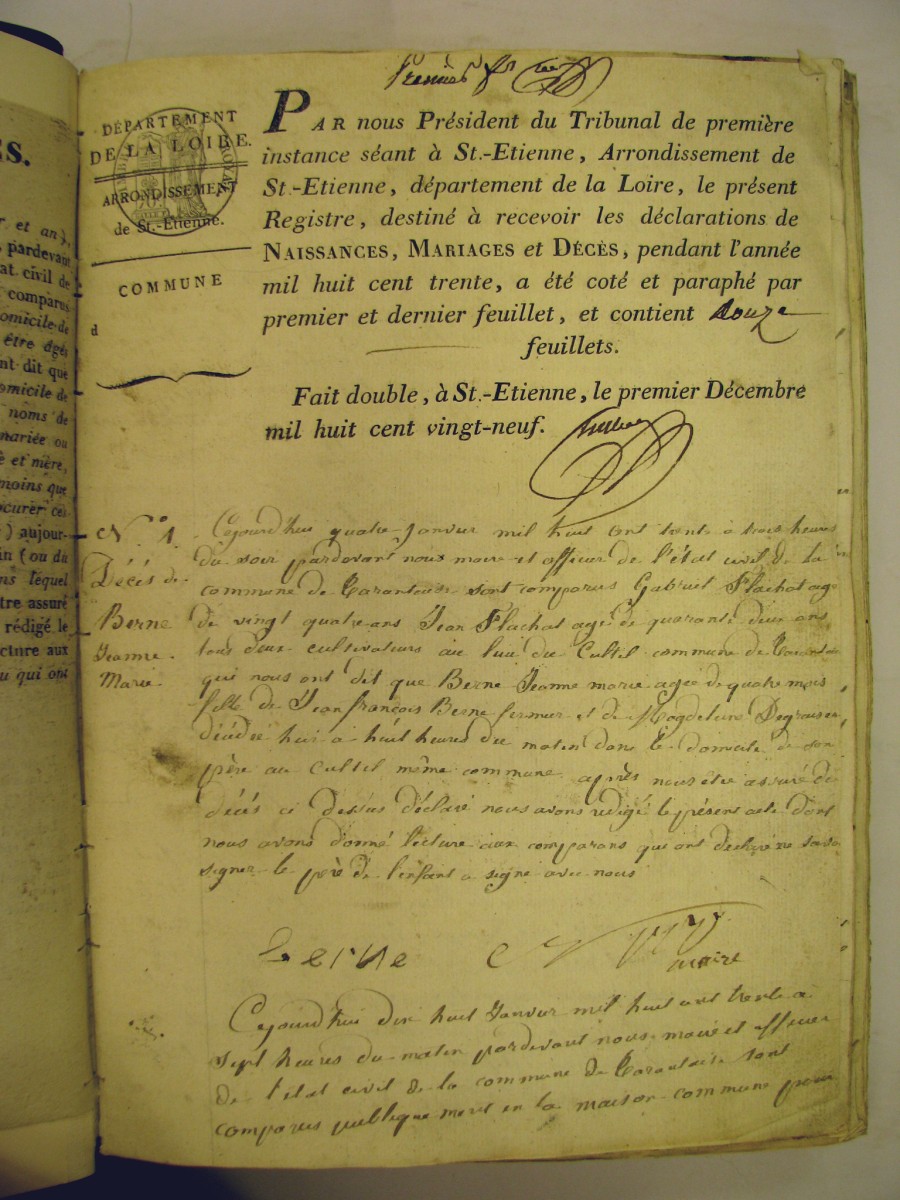 S.
r et an),
pardevant
at civil de
comparus
omicile de
être âgés
nt dit que
omicile de
noms de
mariée ou
e et mère,
moins que
ocurer ces
) aujour-
in (ou du
ns lequel
tre assuré
rédigé le
cture aux
u qui ont
Premier
DÉPARTEMENT
DE LA LOIRE.
ARRONDISSEMENT
de St.-Etienne.
COMMUNE
d
PAR nous Président du Tribunal de première
instance séant à St.-Etienne, Arrondissement de
St.-Etienne, département de la Loire, le présent
Registre, destiné à recevoir les déclarations de
NAISSANCES, MARIAGES et DÉCÈS, pendant l'année
mil huit cent trente, a été coté et paraphé par
premier et dernier feuillet, et contient douze
feuillets.
Fait double, à St.-Etienne, le premier Décembre
mil huit cent vingt-neuf.
N.° 1.
Décès de
Berne
Jeanne
Marie
Cejourdhui quatre Janvier mil huit cent trente à trois heures
du soir pardevant nous maire et officier de l'état civil de la
commune de Tarantaise sont comparus Gabriel Flachat agé
de vingt quatre ans Jean Flachat agé de quarante deux ans
tous deux cultivateurs au lieu du Cultil commune de Tarantaise
qui nous ont dit que Berne Jeanne marie agée de quatre mois
fille de Jean françois Berne fermier et de Magdeleine
décédée hui a huit heures du matin dans le domicile de son
père au Cultil même commune après nous etre assuré du
décés ci dessus déclaré nous avons rédigé le présent acte dont
nous avons donné lecture aux comparans qui ont déclaré ne savoir
signer le père de l'enfant a signé avec nous
berne
maire
Cejourdhui dix huit Janvier mil huit cent trente a
sept heures du matin pardevant nous maire et officier
de l'état civil de la commune de Tarantaise sont
comparus publiquement en la maison commune pour